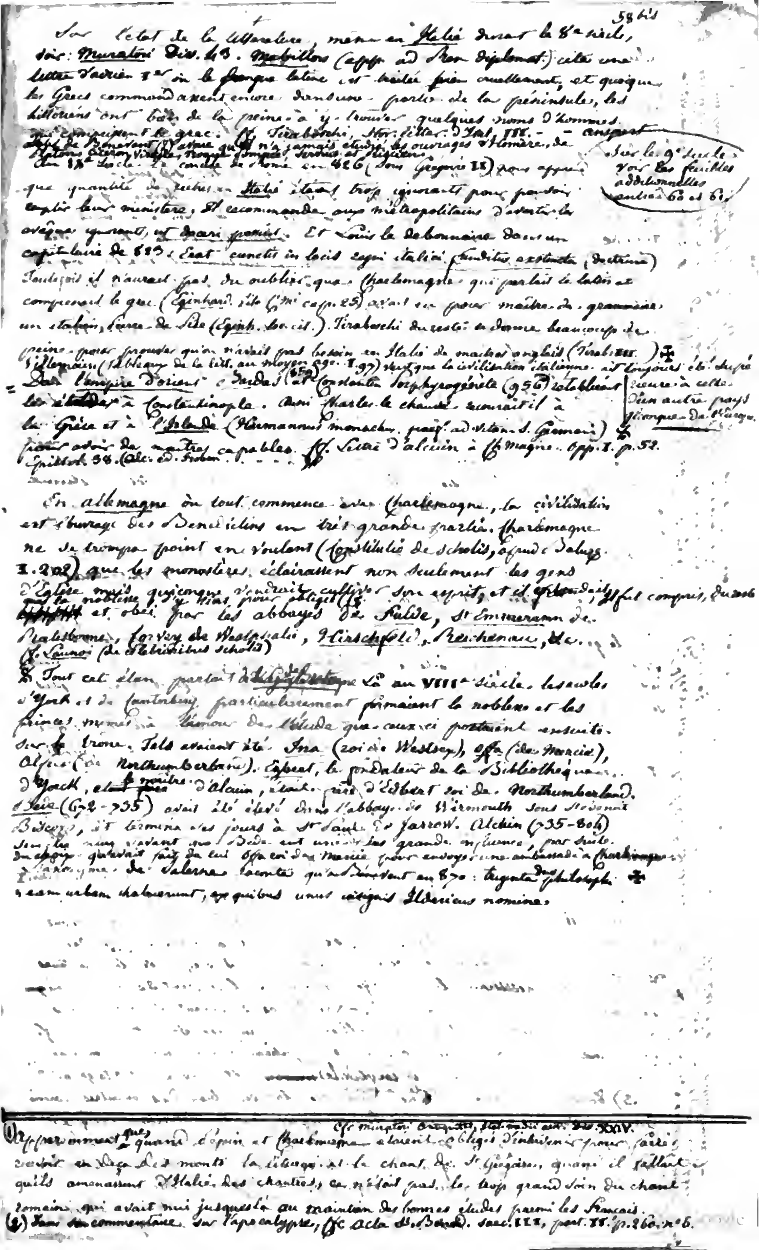 58 bis
Sur l'état de la littérature, même en Italie durant le 8e siècle,
voir: Muratori Diss. 43. Mabillon (app. ad Rem diplomat.) cite une
lettre d'adrien Ier où la langue latine est traitée cruellement, et quoique
les Grecs commandassent encore dans une partie de la péninsule, les
historiens ont bien de la peine à y trouver quelques noms d'hommes
qui comprissent le grec. Cf. Tiraboschi, Stor. letter. d'Ital. III. - - anspert
abbé de Benevent (2) avoue qu'il n'a jamais étudié les ouvrages d'Homère, de
Platon, Cicéron, Virgile,
Au IXe siècle, le concile de Rome en 826 (sous Grégoire IV) nous apprend
Sur le 9e siècle
voir les feuilles
additionnelles
entre 60 et 61
que quantité de en Italie étaient trop ignorants pour pouvoir
remplir leur ministère. Il recommande aux métropolitains d'avertir les
évêques ignorants, ut possint. Et Louis le débonnaire dans un
capitulaire de 823: cunctis in locis regni italici funditus extincta (doctrina)
Toutefois il n'aurait pas dû oublier que Charlemagne qui parlait le latin et
comprenait le grec (Eginhard. vita Cmi cap. 25) avait eu pour maître de grammaire
un italien, Pierre de Pise (Eginh. loc. cit.). Tiraboschi du reste se donne beaucoup de
peine pour prouver qu'on n'avait pas besoin en Italie de maîtres anglais (Tirab. III. ) ✠
Villemain (tableau de la litt. au moyen age. I. 97) veut que la civilisation italienne ait toujours été supé
rieure à celle
d'un autre pays
quelconque de l'Europe
= Dans l'empire d'orient Bardas et Constantin Porphyrogénète (956) rétablirent
les études à Constantinople. Aussi Charles le chauve recourait il à
la Grèce et à l'Irlande (Hermannus monachus, præf. ad vitam S. Germani)
pour avoir des maîtres capables. Cf. Lettre d'alcuin à Ch magne. Opp. I. p. 52.
Epistol. 38. (Alc. ed. Froben.
En allemagne où tout commence avec Charlemagne, la civilisation
est l'ouvrage des Bénédictins en très grande partie. Charlemagne
ne se trompa point en voulant (Constitutio de scholis, apud Baluze.
I. 202) que les monastères éclairassent non seulement les gens
d'Eglise mais quiconque voudrait cultiver son esprit, et il Il fut compris, du reste
et obéi par les abbayes de Fulde, St Emmeramm de
Ratisbonne, Corvey de Westphalie, Hirschfeld, Reichenau, &c.
(Cf. Launoi (de celebrioribus scholis)
Tout cet élan partait de la gde Bretagne. Là au VIIIe siècle les écoles
d'York et de Cantorbéry particulièrement formaient la noblesse et les
princes mêmes à l'amour de l'étude que ceux-ci portaient ensuite
sur le trone. Tels avaient été Ina (roi de Westsex), Offa (de Mercie),
Alfred (de Northumberland). Egbert, le fondateur de la Bibliothèque
d'Yorck, le maître d'Alcuin, était frère d'Edbert roi de Northumberland.
Bede (672-735) avait été élevé dans l'abbaye de Wermouth sous St Benoit
Biscop, et termina ses jours à St Paul de Jarrow. Alcuin (735-804)
moins savant que Bède eut une plus grande influence, par suite
du choix qu'avait fait de lui Offa roi de Mercie pour envoyer une ambassade à Charlemagne
L'anonyme de Salerne raconte qu'à Bénévent en 870: triginta duo philosophi ✠
eam urbem habuerunt, ex quibus unus insignis Ildericus nomine.
Cfr Muratori Antiquit. Ital. medii aevi. Diss. XXIV.
(1) Apparemment que quand Pépin et Charlemagne étaient obligés d'intervenir pour faire
revivre en deçà des monts la liturgie et le chant de St Grégoire, quand il fallait
qu'ils amenassent d'Italie des chantres, ce n'était pas le trop grand soin du chant
romain qui avait nui jusques là au maintien des bonnes études parmi les Français.
(2) Dans son commentaire sur l'apocalypse, Cfr Acta SS. Bened. saec. III, part. II. p. 260. n° 6.